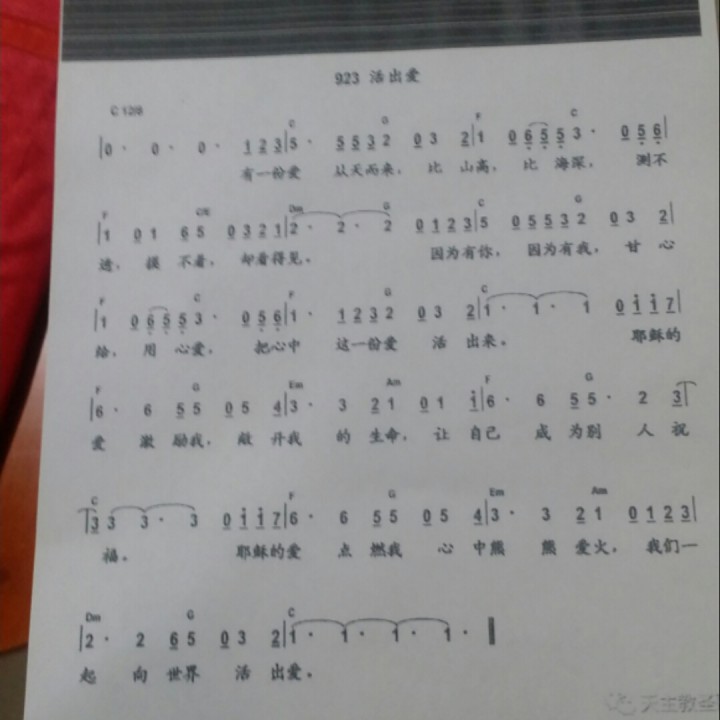 923 活出爱
C 12/8
C G F C
0· 0· 0· 1 2 3|5· 5 5 3 2 0 3 2|1 0 6 5 5 3· 0 5 6|
有一份爱 从天而来, 比 山高, 比 海深, 测不
F C/E Dm G C G
|1 0 1 6 5 0 3 2 1|2· 2· 2 0 1 2 3|5 0 5 5 3 2 0 3 2|
透, 摸 不着, 却看得见。 因为有你, 因为有我, 甘 心
F C F G C
|1 0 6 5 5 3· 0 5 6|1· 1 2 3 2 0 3 2|1· 1· 1 0 i i 7|
给, 用 心爱, 把心中 这一份爱 活 出来。 耶稣的
F G Em Am F G
|6· 6 5 5 0 5 4|3· 3 2 1 0 1 i|6· 6 5 5· 2 3|
爱 激 励我, 敞 开我 的 生命, 让 自己 成 为别 人 祝
C F G Em Am
|3 3 3· 3 0 i i 7|6· 6 5 5 0 5 4|3· 3 2 1 0 1 2 3|
福。 耶稣的爱 点 燃我 心 中熊 熊 爱火, 我们一
Dm G C
|2· 2 6 5 0 3 2|1· 1· 1· 1·
起 向 世界 活 出爱。
天主教圣